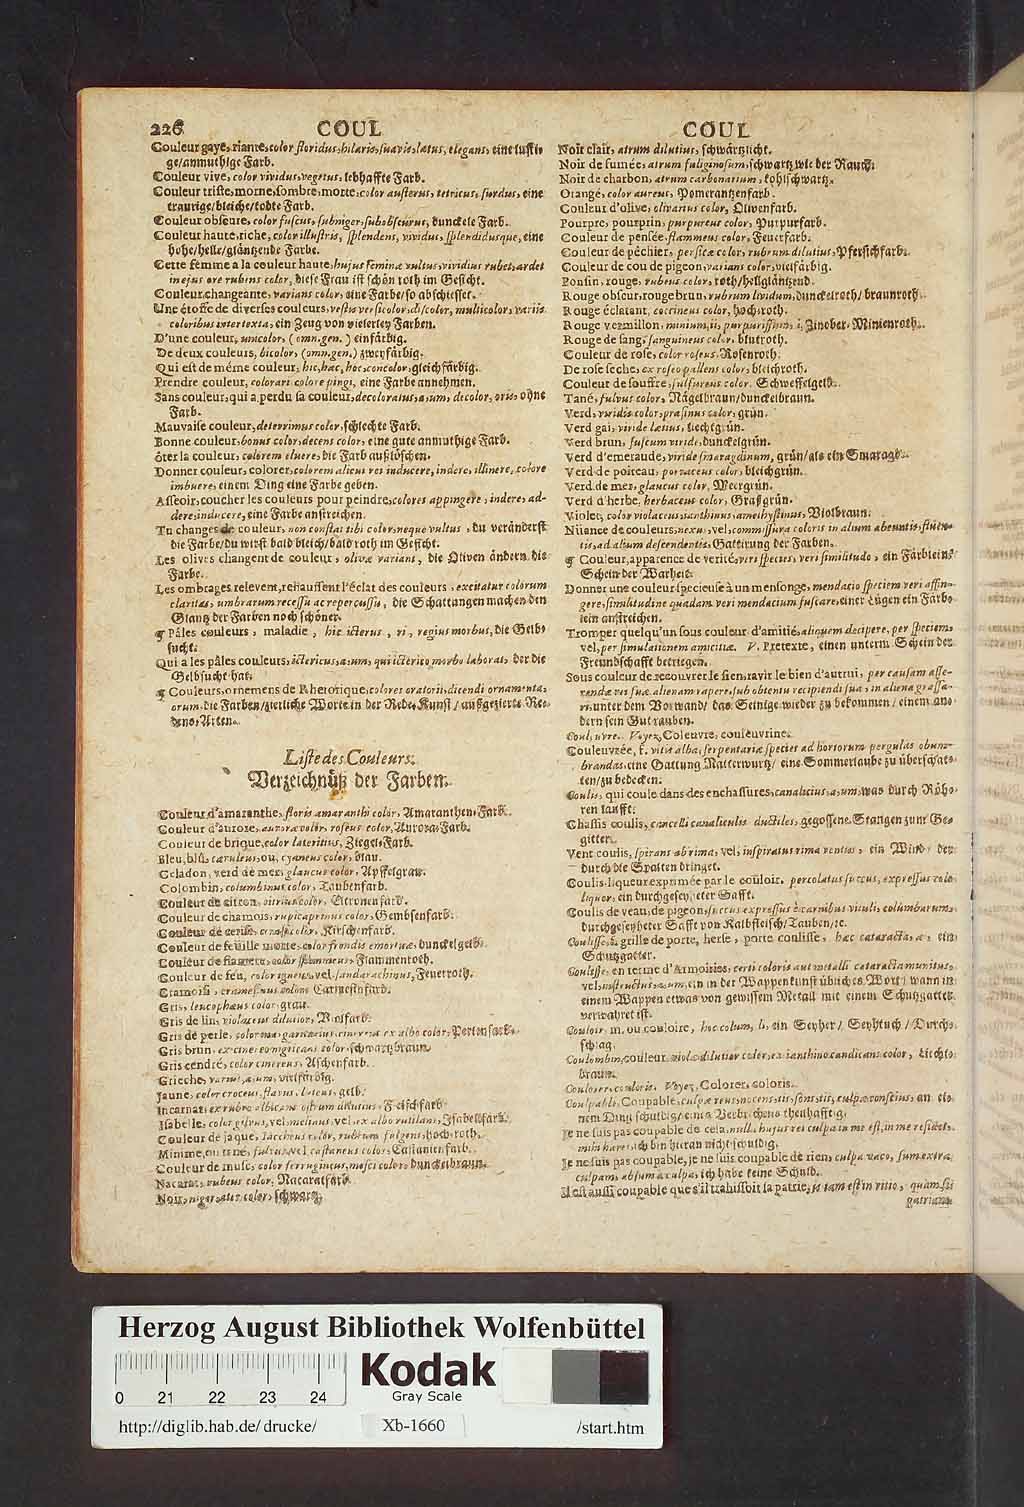 226 COUL COUL
Couleur gaye, riante, color floridus, hilaris, suavis, lætus, elegans, eine lusti-
ge/anmuthige Farb.
Couleur vive, color vividus, vegetus, lebhaffte Farb.
Couleur triste, morne, sombre, morte, color austerus, tetricus, surdus, eine
traurige/bleiche/todte Farb.
Couleur obscure, color fuscus, subniger, subobscurus, dunckele Farb.
Couleur haute, riche, color illustris, splendens, vividus, splendidusque, eine
hohe/helle/gläntzende Farbe.
Cette femme a la couleur haute, hujus feminæ vultus, vividius rubet, ardet
in ejus ore rubens color, diese Frau ist schön roth im Gesicht.
Couleur changeante, varians color, eine Farbe/so abschiesset.
Une étoffe de diverses couleurs, vestis versicolor, discolor, multicolor, variis
coloribus intertexta, ein Zeug von vielerley Farben.
D'une couleur, unicolor, (omn. gen.) einfärbig.
De deux couleurs, bicolor, (omn. gen.) zweyfärbig.
Qui est de même couleur, hic, hæc, hoc, concolor, gleichfärbig.
Prendre couleur, colorari colore pingi, eine Farbe annehmen.
Sans couleur, qui a perdu sa couleur, decoloratus, a, um, decolor, oris, ohne
Farb.
Mauvaise couleur, deterrimus color, schlechte Farb.
Bonne couleur, bonus color, decens color, eine gute anmuthige Farb.
ôter la couleur, colorem eluere, die Farb außlöschen.
Donner couleur, colorer, colorem alicui rei inducere, indere, illinere, colore
imbuere, einem Ding eine Farbe geben.
Asseoir, coucher les couleurs pour peindre, colores appingere, indere, ad-
dere, inducere, eine Farbe anstreichen.
Tu changes de couleur, non constat tibi color, neque vultus, du veränderst
die Farbe/du wirst bald bleich/bald roth im Gesicht.
Les olives changent de couleur, olivæ variant, die Oliven ändern die
Farbe.
Les ombrages relevent, rehaussent l'éclat des couleurs, excitatur colorum
claritas, umbrarum recessu ac repercussu, die Schattungen machen den
Glantz der Farben noch schöner.
¶ Pâles couleurs, maladie, hic icterus, ri, regius morbus, die Gelb-
sucht.
Qui a les pâles couleurs, ictericus, a, um, qui icterico morbo laborat, der die
Gelbsucht hat.
¶ Couleurs, ornemens de Rhetorique, colores oratorii, dicendi ornamenta,
orum, die Farben/zierliche Worte in der Rede-Kunst/außgezierte Re-
dens-Arten.
Liste des Couleurs.
Verzeichnüß der Farben.
Couleur d'amaranthe, floris amaranthi color, Amaranthen-Farb.
Couleur d'aurore, auroræ color, roseus color, Aurora-Farb.
Couleur de brique, color lateritius, Ziegel-Farb.
Bleu, blû, cæruleus, ou, cyaneus color, blau.
Celadon, verd de mer, glaucus color, Apffelgraw.
Colombin, columbinus color, Taubenfarb.
Couleur de citron, citrius color, Citronenfarb.
Couleur de chamois, rupicaprinus color, Gembsenfarb.
Couleur de cerise, color, Kirschenfarb.
Couleur de feuille morte, color frondis emortuæ, dunckelgelb.
Couleur de flamme, color flammeus, Flammenroth.
Couleur de feu, color igneus, vel, sandarachinus, Feuerroth.
Cramoisi, cramesinus colore Carmesinfarb.
Gris, leucophæus color, grau.
Gris de lin, violaceus dilutior, Violfarb.
Gris de perle, color ex albo color, Perlenfarb.
Gris brun, ex cinereo nigricans color, schwartzbraun
Gris cendré, color cinereus, Aschenfarb.
Grieche, varius, a, um, vielfärbig.
Jaune, color croceus, flavus, luteus, gelb.
Incarnat, ex rubro albicans ostrum dilutius, Fleischfarb.
Isabelle, color gilvus, vel, melinus, vel, ex albo rutilans, Isabellfarb.
Couleur de jaque, color, rubrum fulgens, hoch-roth.
Minime, ou tané, fulvus, vel castaneus color, Castanienfarb.
Couleur de musc, color ferrugineus, mosci color, dunckelbraun.
Nacarat, rubeus color, Nacaratfarb.
Noir, niger, ater, color, schwartz,
Noir clair, atrum dilutius, schwärtzlicht.
Noir de fumée, atrum fuliginosum, schwartz wie der Rauch.
Noir de charbon, atrum carbonarium, kohlschwartz.
Orangé, color aureus, Pomerantzenfarb.
Couleur d'olive, olivarius color, Olivenfarb.
Pourpre, pourprin, purpureus color, Purpurfarb.
Couleur de pensée, flammeus color, Feuerfarb.
Couleur de pêchier, persicæ color, rubrum dilutius, Pfersichfarb.
Couleur de cou de pigeon, varians color, vielfärbig.
Ponsin, rouge, rubeus color, roth/hellgläntzend.
Rouge obscur, rouge brun, rubrum lividum, dunckelroth/braunroth.
Rouge éclatant, coccineus color, hoch-roth.
Rouge vermillon, minium, ii, purpurissum, i, Zinober-Minienroth.
Rouge de sang, sanguineus color, blutroth.
Couleur de rose, color roseus, Rosenroth.
De rose seche, ex roseo pallens color, bleichroth.
Couleur de souffre, sulfureus color, Schweffelgelb.
Tané, fulvus color, Nägelbraun/dunckelbraun.
Verd, viridis color, prasinus color, grün.
Verd gai, viride lætius, liechtgrün.
Verd brun, fuscum viride, dunckelgrün.
Verd d'emeraude, viride smaragdinum, grün/als ein Smaragd.
Verd de poireau, porraceus color, bleichgrün.
Verd de mer, glaucus color, Meergrün.
Verd d'herbe, herbaceus color, Graßgrün.
Violet, color violaceus, ianthinus, amethystinus, Violbraun.
Nüance de couleurs, nexus, vel, commissura coloris in alium abeuntis, fluen-
tis, ad alium descendentis, Gattirung der Farben.
¶ Couleur, apparence de verité, veri species, veri similitudo, ein Färblein/
Schein der Warheit.
Donner une couleur specieuse à un mensonge, mendacio speciem veri affin-
gere, similitudine quadam veri mendacium fuscare, einer Lügen ein Färb-
lein anstreichen.
Tromper quelqu'un sous couleur d'amitié, aliquem decipere, per speciem,
vel, per simulationem amicitiæ. V. Pretexte, einen unterm Schein der
Freundschafft betriegen.
Sous couleur de recouvrer le sien, ravir le bien d'autrui, per causam asse-
rendæ rei suæ alienam rapere, sub obtentu recipiendi sua, in aliena grassa-
ri, unter dem Vorwand/das Seinige wieder zu bekommen/einem an-
dern sein Gut rauben.
Couleuvre. Voyez, Coleuvre, couleuvrine.
Couleuvrée, f. vitis alba, serpentariæ species ad hortorum pergulas obum-
brandas, eine Gattung Natterwurtz/eine Sommerlaube zu überschat-
ten/zu bedecken.
Coulis, qui coule dans des enchassures, canalicius, a, um, was durch Röh-
ren laufft.
Chassis coulis, cancelli canaliculis ductiles, gegossene Stangen zum Ge-
gitter.
Vent coulis, spirans ab rima, vel, inspiratus rima ventus, ein Wind/der
durch die Spalten dringet.
Coulis, liqueur exprimée par le couloir, percolatus succus, expressus colo
liquor, ein durchgeseyheter Safft.
Coulis de veau, de pigeon, succus expressus è carnibus vituli, columbarum,
durchgeseyheter Safft von Kalbfleisch/Tauben/ꝛc.
Coulisse, grille de porte, herse, porte coulisse, hæc cataracta, æ, ein
Schutzgatter.
Coulisse, en terme d'Armoiries, certi coloris aut metalli cataracta munitus,
vel, instructus, a, um, ein in der Wappenkunst übliches Wort/wann in
einem Wappen etwas von gewissem Metall mit einem Schutzgatter
verwahret ist.
Couloir, m. ou couloire, hoc colum, li, ein Seyher/Seyhtuch/Durch-
schlag.
Coulombin, couleur, viola dilutior color, ex ianthino candicans color, Liecht-
braun.
Coulorer, couloris. Voyez, Colorer, coloris.
Coulpable, Coupable, culpæ reus, nocens, tis, sons, tis, culpæ conscius, an ei-
nem Ding schuldig/eines Verbrechens theilhafftig.
Je ne suis pas coupable de cela, nulla hujus rei culpa in me est, in me residet,
ich bin hieran nicht schuldig.
Je ne suis pas coupable, je ne suis coupable de rien, culpa vaco, sum extra
culpam, absum à culpa, ich habe keine Schuld.
Il est aussi coupable que s'il trahissoit la patrie, is tam est in vitio, quàm si
patriam
Herzog August Bibliothek Wolfenbüttel
0 21 22 23 24
Kodak
Gray Scale
http://diglib.hab.de/drucke/ Xb-1660 /start.htm